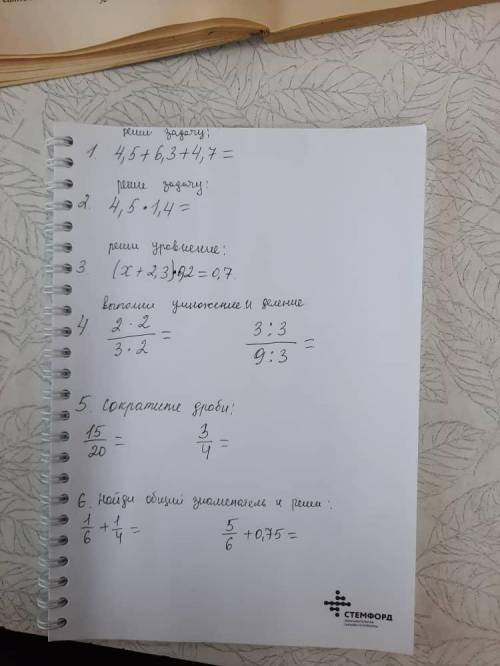 реши задачу:
1. 4,5+6,3+4,7=
реши задачу:
2. 4,5·1,4=
реши уравнение:
3. (x+2,3)·0,2=0,7
выполни умножение и деление
4 2·2/3·2= 3:3/9:3=
5. Сократите дроби:
15/20= 3/4=
6. Найди общий знаменатель и реши:
1/6+1/4= 5/6+0,75=
СТЕМФОРД